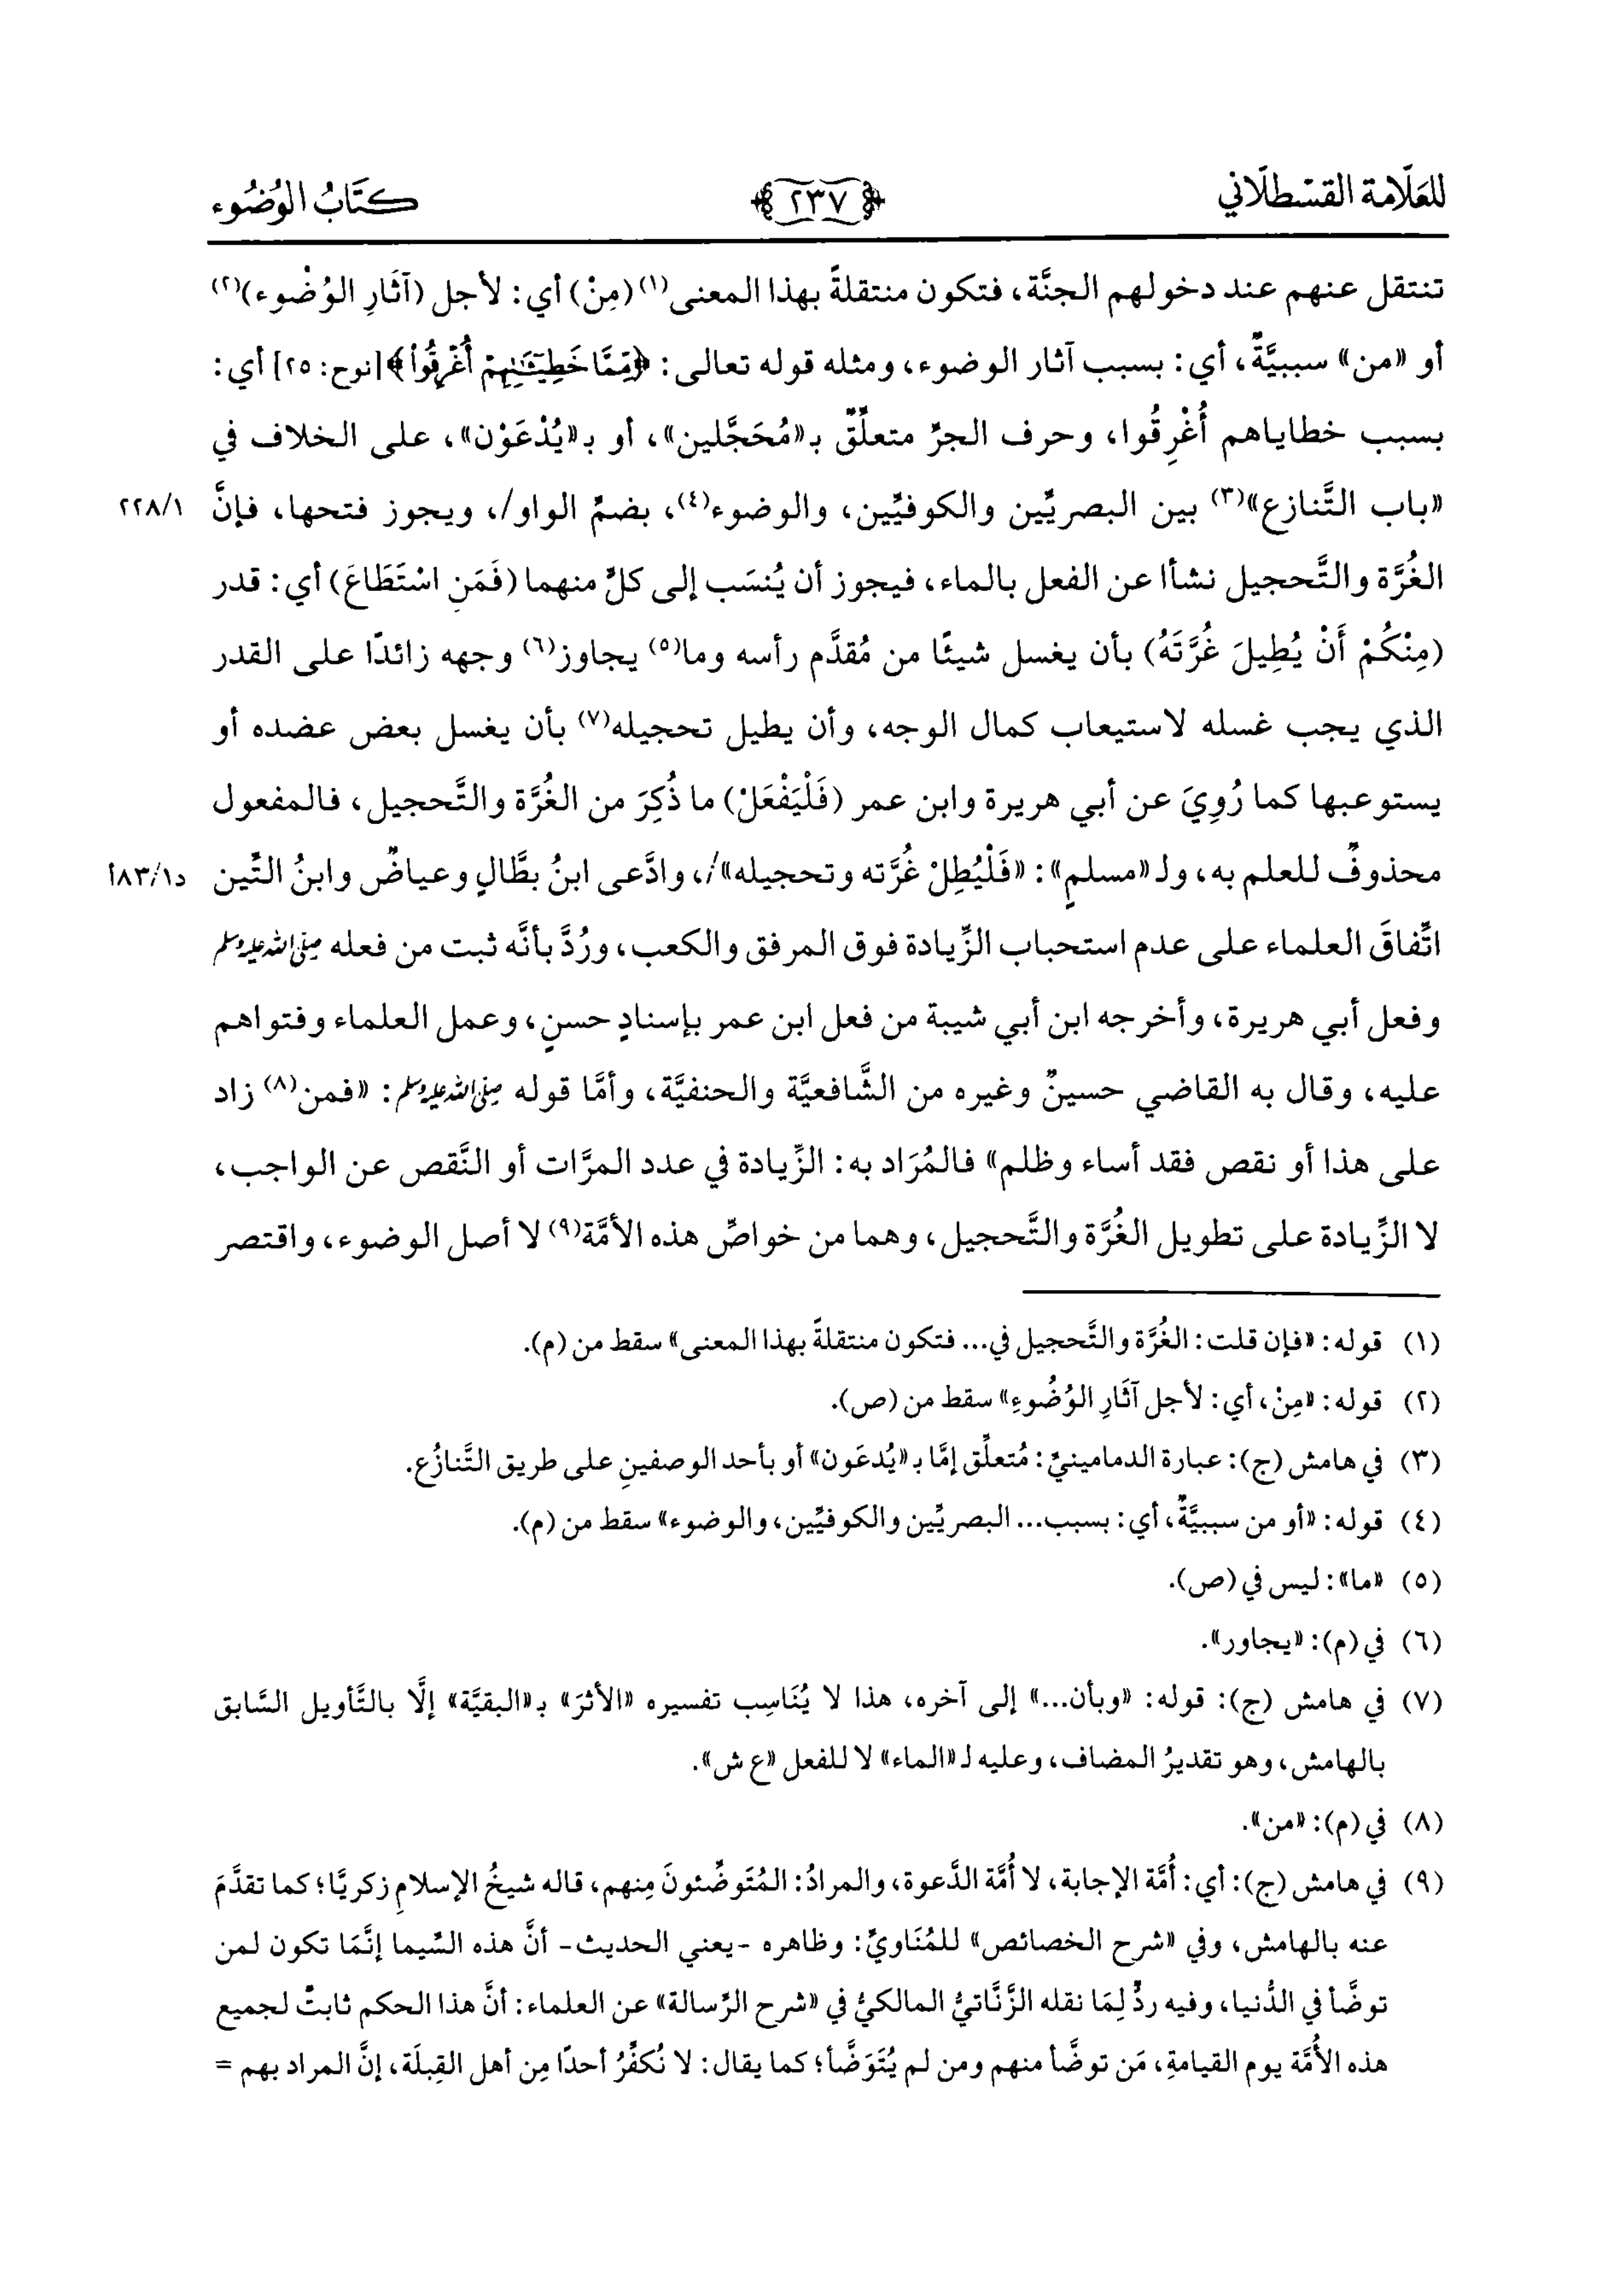 للعَلّامة القسْطلّاني ٢٣٧ كتَابُ الوُضُوء
تنتقل عنهم عند دخولهم الجنَّة، فتكون منتقلةً بهذا المعنى(١) (مِنْ) أي: لأجل (آثَارِ الوُضُوء)(٢)
أو «من» سببيَّةٌ، أي: بسبب آثار الوضوء، ومثله قوله تعالى: ﴿مِّمَّا خَطِيٓـَٔـٰتِهِمْ أُغْرِقُوا۟﴾ [نوح: ٢٥] أي:
بسبب خطاياهم أُغْرِقُوا، وحرف الجرِّ متعلِّقٌ بـ«مُحَجَّلين»، أو بـ«يُدْعَوْن»، على الخلاف في
«باب التَّنازع»(٣) بين البصريِّين والكوفيِّين، والوضوء(٤)، بضمِّ الواو/، ويجوز فتحها، فإنَّ ٢٢٨/١
الغُرَّة والتَّحجيل نشأا عن الفعل بالماء، فيجوز أن يُنسَب إلى كلٍّ منهما (فَمَنِ اسْتَطَاعَ) أي: قدر
(مِنْكُمْ أَنْ يُطِيلَ غُرَّتَهُ) بأن يغسل شيئًا من مُقدَّم رأسه وما(٥) يجاوز(٦) وجهه زائدًا على القدر
الذي يجب غسله لاستيعاب كمال الوجه، وأن يطيل تحجيله(٧) بأن يغسل بعض عضده أو
يستوعبها كما رُوِيَ عن أبي هريرة وابن عمر (فَلْيَفْعَلْ) ما ذُكِرَ من الغُرَّة والتَّحجيل، فالمفعول
محذوفٌ للعلم به، ولـ«مسلمٍ»: «فَلْيُطِلْ غُرَّته وتحجيله»/، وادَّعى ابنُ بطَّالٍ وعياضٌ وابنُ التِّين د٨٣/١أ
اتِّفاقَ العلماء على عدم استحباب الزِّيادة فوق المرفق والكعب، ورُدَّ بأنَّه ثبت من فعله صلى الله عليه وسلم
وفعل أبي هريرة، وأخرجه ابن أبي شيبة من فعل ابن عمر بإسنادٍ حسنٍ، وعمل العلماء وفتواهم
عليه، وقال به القاضي حسينٌ وغيره من الشَّافعيَّة والحنفيَّة، وأمَّا قوله صلى الله عليه وسلم: «فمن(٨) زاد
على هذا أو نقص فقد أساء وظلم» فالمُرَاد به: الزِّيادة في عدد المرَّات أو النَّقص عن الواجب،
لا الزِّيادة على تطويل الغُرَّة والتَّحجيل، وهما من خواصِّ هذه الأمَّة(٩) لا أصل الوضوء، واقتصر
(١) قوله: «فإن قلت: الغُرَّة والتَّحجيل في... فتكون منتقلةً بهذا المعنى» سقط من (م).
(٢) قوله: «مِنْ، أي: لأجل آثَارِ الوُضُوءِ» سقط من (ص).
(٣) في هامش (ج): عبارة الدمامينيِّ: مُتعلِّق إمَّا بـ«يُدعَون» أو بأحد الوصفينِ على طريق التَّنازُع.
(٤) قوله: «أو من سببيَّةٌ، أي: بسبب... البصريِّين والكوفيِّين، والوضوء» سقط من (م).
(٥) «ما»: ليس في (ص).
(٦) في (م): «يجاور».
(٧) في هامش (ج): قوله: «وبأن...» إلى آخره، هذا لا يُنَاسِب تفسيره «الأثرَ» بـ«البقيَّة» إلَّا بالتَّأويل السَّابق
بالهامش، وهو تقديرُ المضاف، وعليه لـ«الماء» لا للفعل «ع ش».
(٨) في (م): «من».
(٩) في هامش (ج): أي: أُمَّة الإجابة، لا أُمَّة الدَّعوة، والمرادُ: المُتَوضِّئونَ مِنهم، قاله شيخُ الإسلامِ زكريَّا؛ كما تقدَّمَ
عنه بالهامش، وفي «شرح الخصائص» للمُنَاويِّ: وظاهره -يعني الحديث- أنَّ هذه السِّيما إنَّمَا تكون لمن
توضَّأ في الدُّنيا، وفيه ردٌّ لِمَا نقله الزَّنَّاتيُّ المالكيُّ في «شرح الرِّسالة» عن العلماء: أنَّ هذا الحكم ثابتٌ لجميع
هذه الأُمَّة يوم القيامةِ، مَن توضَّأ منهم ومن لم يُتَوَضَّأ؛ كما يقال: لا نُكفِّرُ أحدًا مِن أهل القِبلَة، إنَّ المراد بهم =